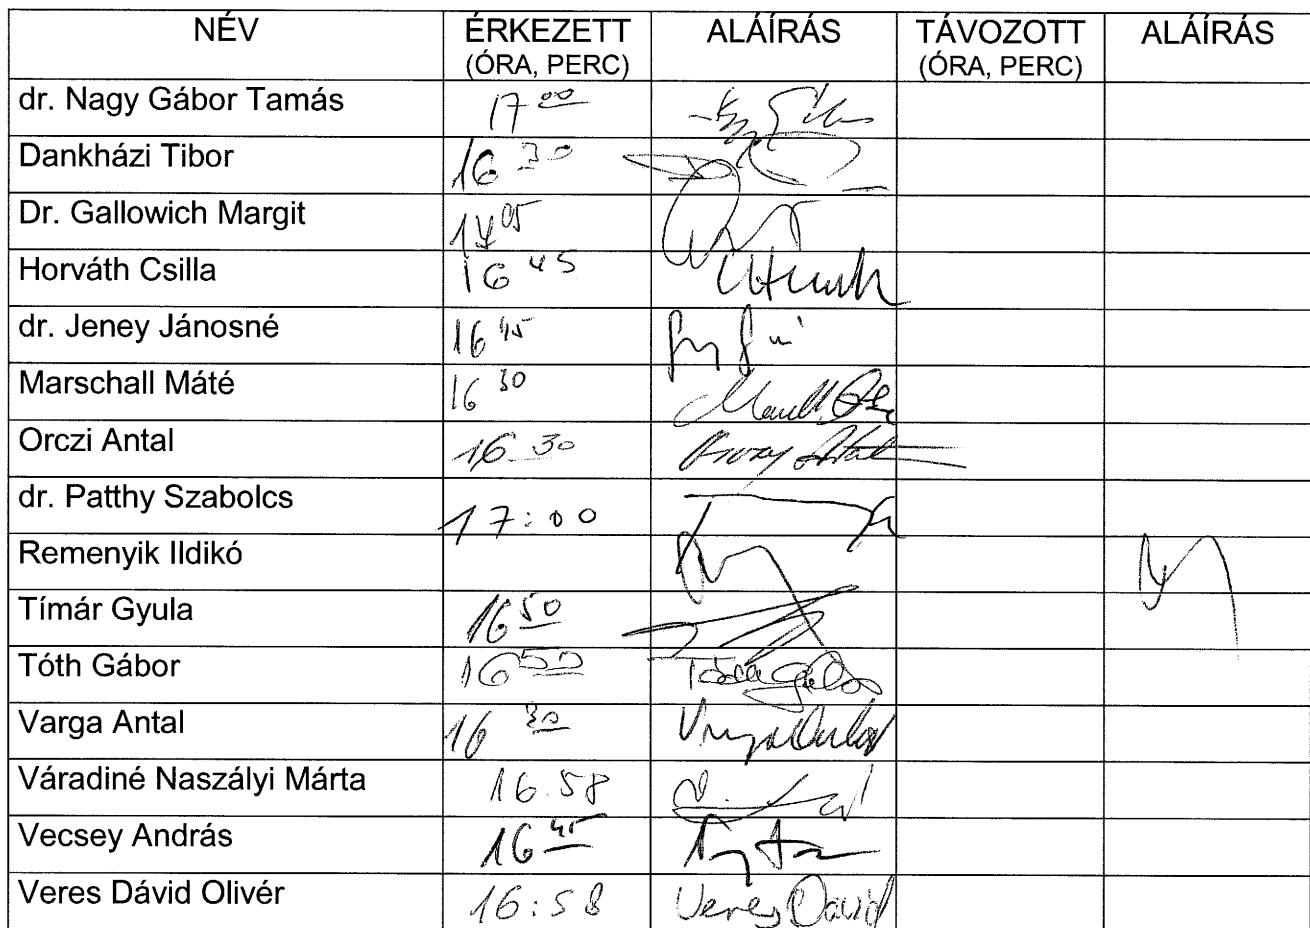 NÉV ÉRKEZETT ALÁÍRÁS TÁVOZOTT ALÁÍRÁS
(ÓRA, PERC) (ÓRA, PERC)
dr. Nagy Gábor Tamás 17 00
Dankházi Tibor 16 30
Dr. Gallowich Margit 05
Horváth Csilla 16 45
dr. Jeney Jánosné 16 45
Marschall Máté 16 30
Orczi Antal 16 30
dr. Patthy Szabolcs 17:00
Remenyik Ildikó
Tímár Gyula 16 50
Tóth Gábor 16 50 Tóth Gábor
Varga Antal 16 30 Varga Antal
Váradiné Naszályi Márta 16.58
Vecsey András 16 45
Veres Dávid Olivér 16:58 Veres Dávid